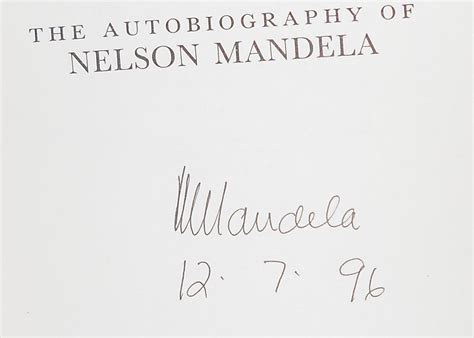 THE AUTOBIOGRAPHY OF
NELSON MANDELA
NMandela
12. 7. 96